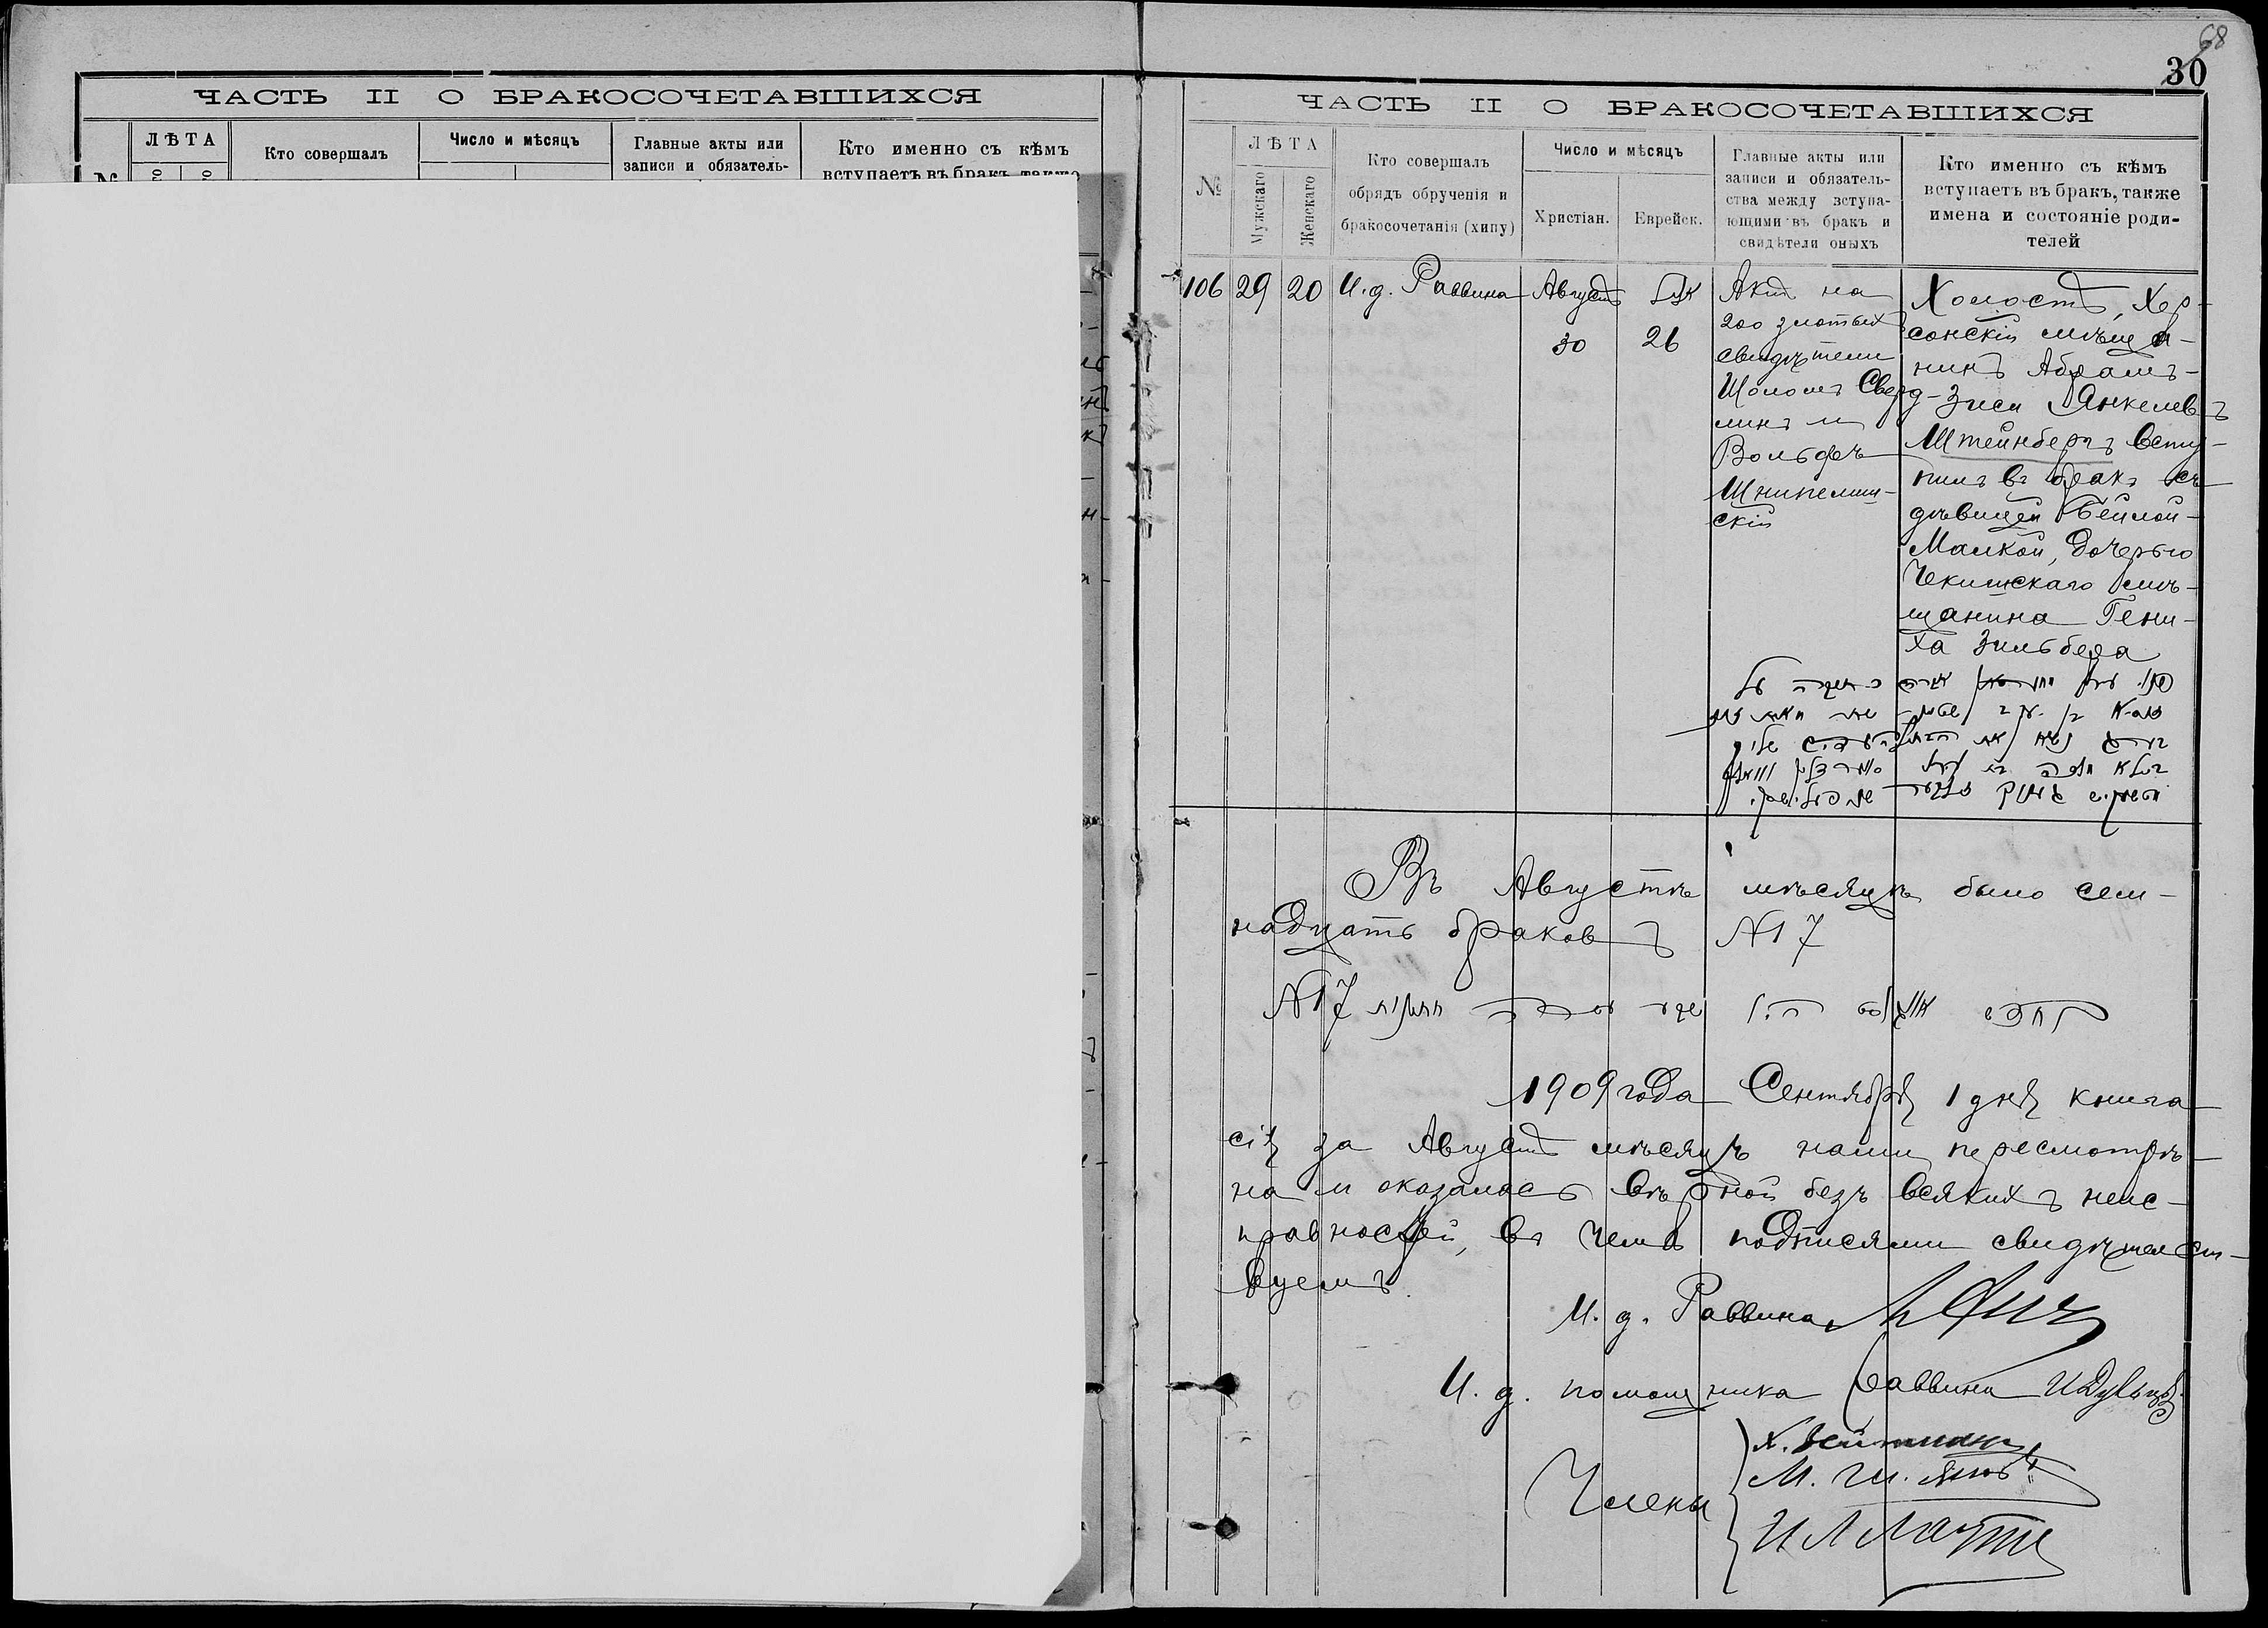 ЧАСТЬ II О БРАКОСОЧЕТАВШИХСЯ
ЛѢТА
Кто совершалъ
Число и мѣсяцъ
Главные акты или
записи и обязатель-
Кто именно съ кѣмъ
вступаетъ въ бракъ, также
68
30
ЧАСТЬ II О БРАКОСОЧЕТАВШИХСЯ
№
ЛѢТА
Мужскаго
Женскаго
Кто совершалъ
обрядъ обрученія и
бракосочетанія (хипу)
Число и мѣсяцъ
Христіан.
Еврейск.
Главные акты или
записи и обязатель-
ства между вступа-
ющими въ бракъ и
свидѣтели оныхъ
Кто именно съ кѣмъ
вступаетъ въ бракъ, также
имена и состояніе роди-
телей
106 29 20 И. д. Раввина
Августъ
30
26
Актъ на
200 злотыхъ
свидѣтели
Шоломъ Сверд-
линъ и
Вольфъ
Шнипелиш-
скій
Холостъ, Хер-
сонскій мѣща-
нинъ Абрамъ-
Зиси Янкелевъ
Штейнбергъ всту-
пилъ въ бракъ съ
дѣвицей Бейлой-
Малкой, дочерью
Чекишскаго мѣ-
щанина Гени-
ха Зильбера
Въ Августѣ мѣсяцѣ было сем-
надцать браковъ N 17
N 17
1909 года Сентября 1 дня книга
сія за Августъ мѣсяцъ нами пересмотрѣ-
на и оказалась вѣрной безъ всякихъ неис-
правностей, въ чемъ подписями свидѣтельст-
вуемъ.
И. д. Раввина
И. д. помощника Раввина
Члены